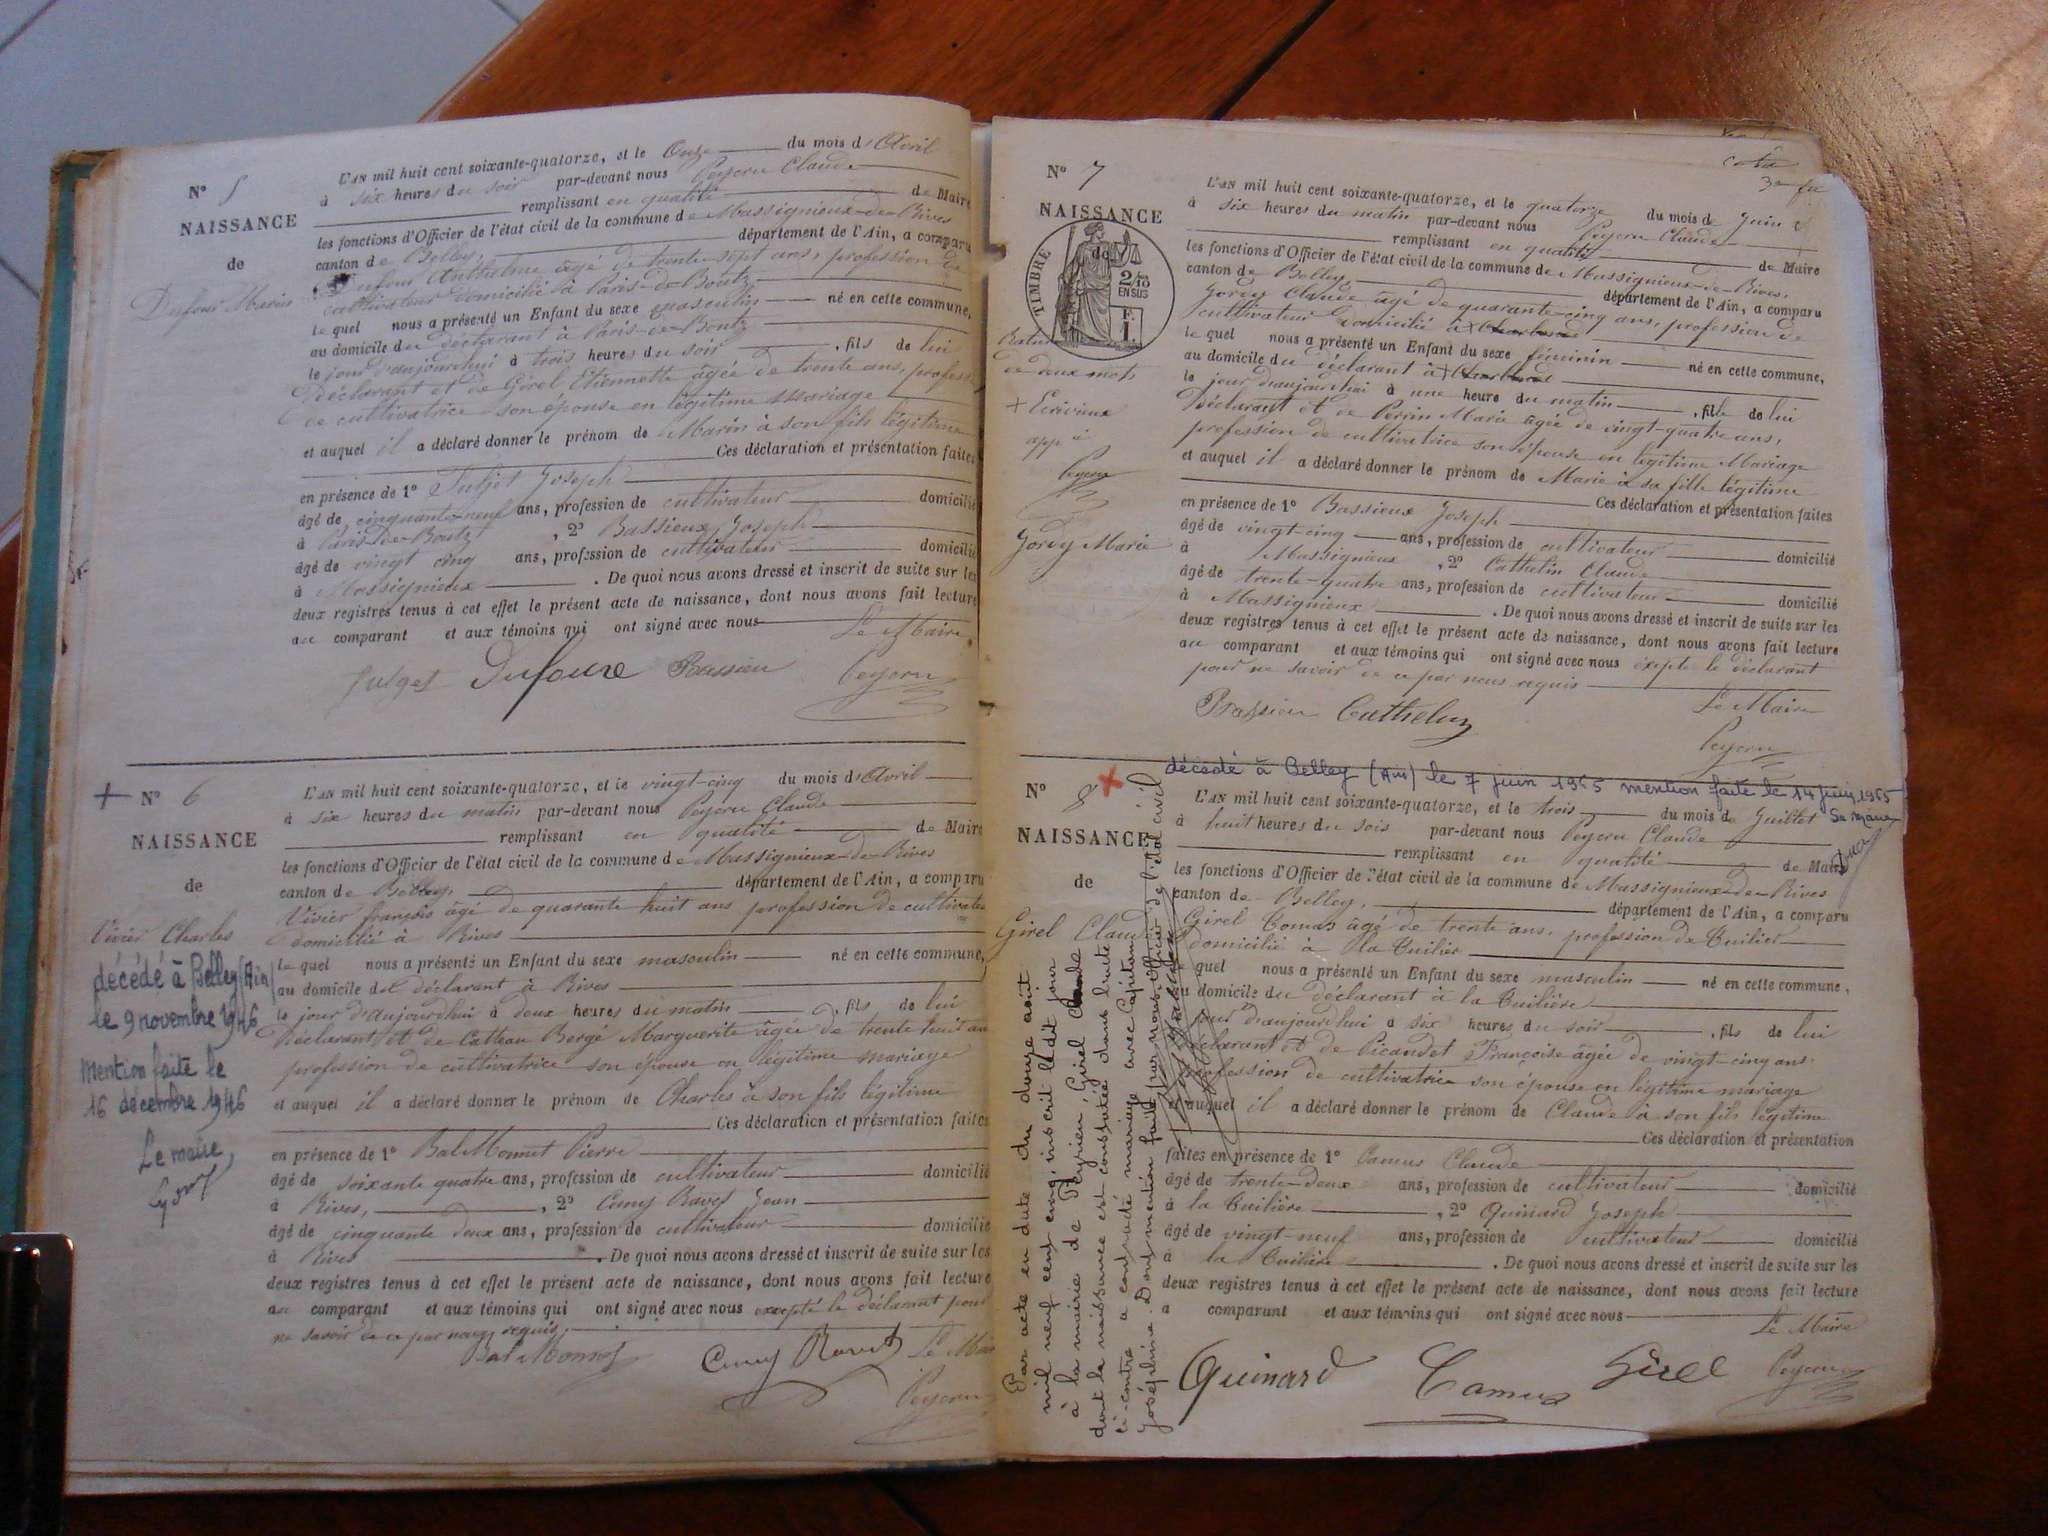 N° 5
NAISSANCE
de
Dufour Marin
L'AN mil huit cent soixante-quatorze, et le Onze du mois d'Avril
à six heures du soir par-devant nous Peycru Claude
remplissant en qualité de Maire
les fonctions d'Officier de l'état civil de la commune de Massignieux-de-Rives
canton de Belley, département de l'Ain, a comparu
Dufour Anthelme âgé de trente-sept ans, profession de
cultivateur domicilié à Paris-de-Boutz
le quel nous a présenté un Enfant du sexe masculin né en cette commune,
au domicile du déclarant à Paris-de-Boutz
le jour d'aujourd'hui à trois heures du soir, fils de lui
Déclarant et de Girel Etiennette âgée de trente ans, profess
de cultivatrice son épouse en légitime mariage
et auquel il a déclaré donner le prénom de Marin à son fils légitime
Ces déclaration et présentation faites
en présence de 1° Juljet Joseph
âgé de cinquante-neuf ans, profession de cultivateur domicilié
à Paris-de-Boutz, 2° Bassieux Joseph
âgé de vingt cinq ans, profession de cultivateur domicilié
à Massignieux. De quoi nous avons dressé et inscrit de suite sur les
deux registres tenus à cet effet le présent acte de naissance, dont nous avons fait lecture
au comparant et aux témoins qui ont signé avec nous
Le Maire
Dufoure Bassieu Peycru
+ N° 6
NAISSANCE
de
Vivier Charles
décédé à Belley (Ain)
le 9 novembre 1946
Mention faite le
16 décembre 1946
Le maire,
L'AN mil huit cent soixante-quatorze, et le vingt-cinq du mois d'Avril
à six heures du matin par-devant nous Peycru Claude
remplissant en qualité de Maire
les fonctions d'Officier de l'état civil de la commune de Massignieux-de-Rives
canton de Belley, département de l'Ain, a comparu
Vivier françois âgé de quarante huit ans profession de cultivateur
domicilié à Rives
le quel nous a présenté un Enfant du sexe masculin né en cette commune,
au domicile del déclarant à Rives
le jour d'aujourd'hui à deux heures du matin, fils de lui
Déclarant et de Catteau Bergé Marguerite âgée de trente huit ans
profession de cultivatrice son épouse en légitime mariage
et auquel il a déclaré donner le prénom de Charles à son fils légitime
Ces déclaration et présentation faites
en présence de 1° Bal Monnet Pierre
âgé de soixante quatre ans, profession de cultivateur domicilié
à Rives, 2° Cuny Ravet Jean
âgé de cinquante deux ans, profession de cultivateur domicilié
à Rives. De quoi nous avons dressé et inscrit de suite sur les
deux registres tenus à cet effet le présent acte de naissance, dont nous avons fait lecture
au comparant et aux témoins qui ont signé avec nous excepté le déclarant pour
ne savoir de ce par nous requis.
Bal Monnet Cuny Ravet Le Maire
Peycru
N° 7
NAISSANCE
de
TIMBRE
2/10
EN SUS
F.
1.
de deux mots
+ Ecrivieux
app é
Peycru
Gorcy Marie
L'AN mil huit cent soixante-quatorze, et le quatorze du mois de Juin
à six heures du matin par-devant nous Peycru Claude
remplissant en qualité de Maire
les fonctions d'Officier de l'état civil de la commune de Massignieux-de-Rives,
canton de Belley département de l'Ain, a comparu
Gorcy Claude âgé de quarante-cinq ans, profession de
cultivateur domicilié à +
le quel nous a présenté un Enfant du sexe féminin né en cette commune,
au domicile du déclarant à +
le jour d'aujourd'hui à une heure du matin, fille de lui
Déclarant et de Perrin Marie âgée de vingt-quatre ans,
profession de cultivatrice son épouse en légitime Mariage
et auquel il a déclaré donner le prénom de Marie à sa fille légitime
Ces déclaration et présentation faites
en présence de 1° Bassieux Joseph
âgé de vingt-cinq ans, profession de cultivateur domicilié
à Massignieux, 2° Cathelin Claude
âgé de trente-quatre ans, profession de cultivateur domicilié
à Massignieux. De quoi nous avons dressé et inscrit de suite sur les
deux registres tenus à cet effet le présent acte de naissance, dont nous avons fait lecture
au comparant et aux témoins qui ont signé avec nous exepté le déclarant
pour ne savoir de ce par nous requis
Le Maire
Bassieu Cathelin
Peycru
décédé à Belley (Ain) le 7 juin 1965 mention faite le 14 juin 1965
Le Maire
N° 8
NAISSANCE
de
Girel Claude
Par acte en date du douze août
mil neuf cent cinq, inscrit ledit jour
à la mairie de Peyrieu, Girel Claude
dont la naissance est constatée dans l'acte
ci-contre a contracté mariage avec Capitan
Joséphine. Dont mention faite par nous officier de l'état civil
L'AN mil huit cent soixante-quatorze, et le trois du mois de Juillet
à huit heures du soir par-devant nous Peycru Claude
remplissant en qualité de Maire
les fonctions d'Officier de l'état civil de la commune de Massignieux-de-Rives
canton de Belley, département de l'Ain, a comparu
Girel Comus âgé de trente ans, profession de Tuilier
domicilié à la Tuilière
le quel nous a présenté un Enfant du sexe masculin né en cette commune,
au domicile du déclarant à la Tuilière
jour d'aujourd'hui à six heures du soir, fils de lui
déclarant et de Picaudet Françoise âgée de vingt-cinq ans
profession de cultivatrice son épouse en légitime mariage
et auquel il a déclaré donner le prénom de Claude à son fils légitime
Ces déclaration et présentation
faites en présence de 1° Camus Claude
âgé de trente-deux ans, profession de cultivateur domicilié
à la Tuilière, 2° Quinard Joseph
âgé de vingt-neuf ans, profession de cultivateur domicilié
à la Tuilière. De quoi nous avons dressé et inscrit de suite sur les
deux registres tenus à cet effet le présent acte de naissance, dont nous avons fait lecture
a comparant et aux témoins qui ont signé avec nous
Le Maire
Quinard Camus Girel Peycru